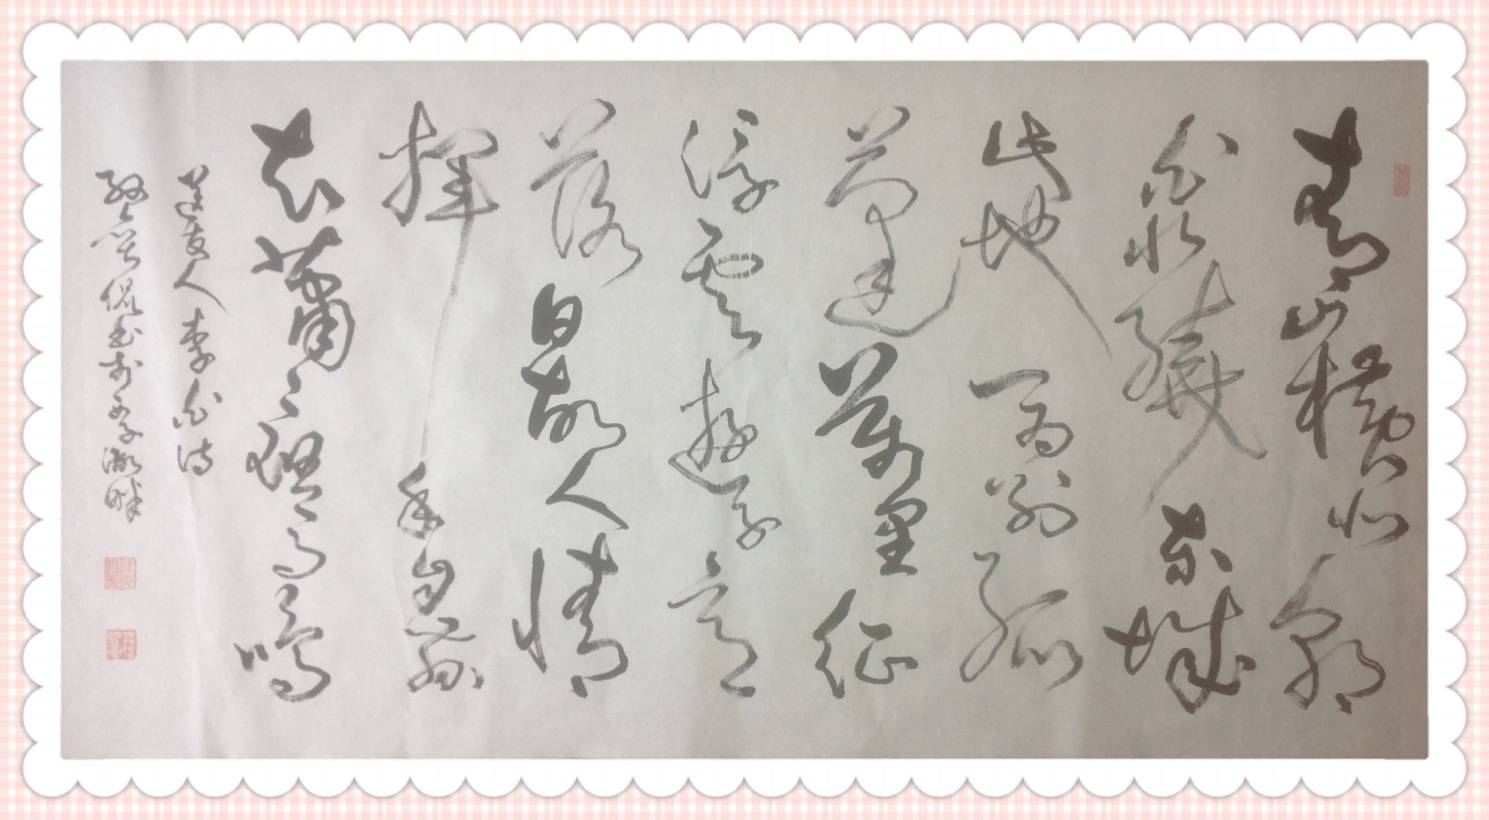 青山橫北郭
白水繞東城
此地一為別孤
蓬萬里征
浮雲遊子意
落日故人情
揮手自茲
去蕭々班馬鳴
送友人李白詩
侃書於子湖畔